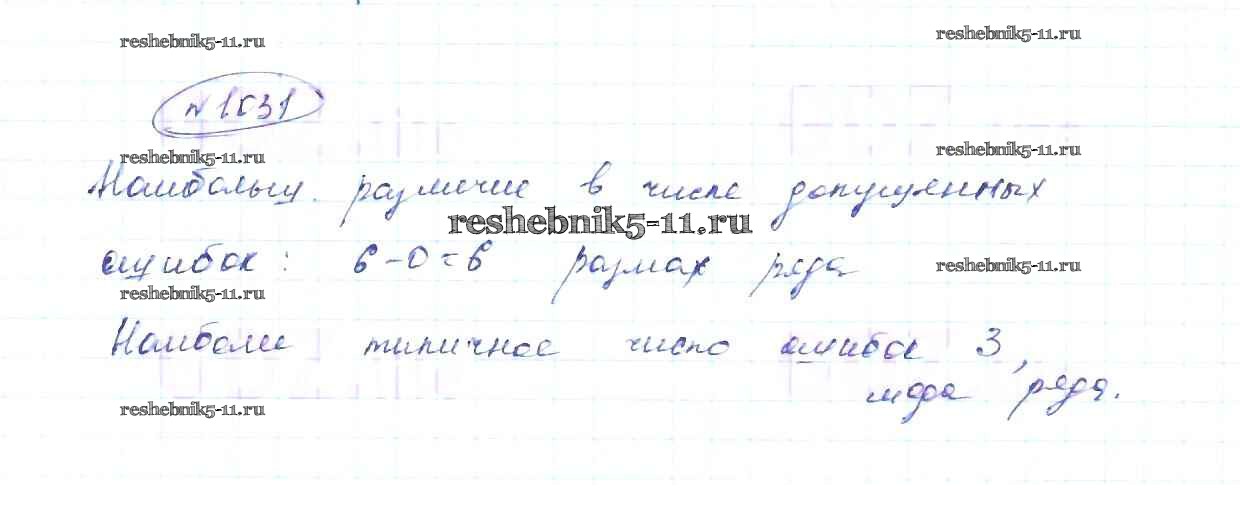 reshebnik5-11.ru
reshebnik5-11.ru
№ 1031
reshebnik5-11.ru
reshebnik5-11.ru
Наибольш. различие в числе допущенных
reshebnik5-11.ru
ошибок: 6-0=6 размах ряда
reshebnik5-11.ru
reshebnik5-11.ru
Наиболее типичное число ошибок 3,
мода ряда.
reshebnik5-11.ru